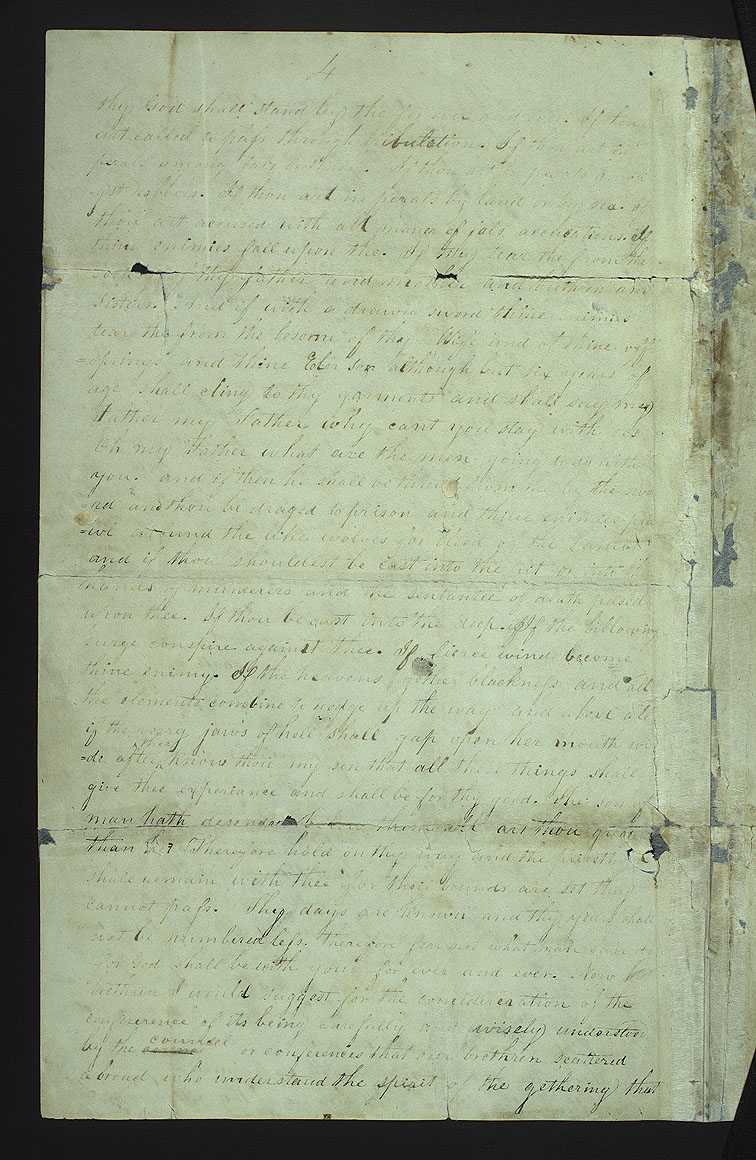 4
thy God shall stand by the for ever and ever. If thou
art called to pass through tribulation. If thou art in
perals among fals brethren. If thou art in perals amon
gst robbers. If thou art in perals by land or by sea. If
thou art accused with all maner of fals accusations. If
thine enimies fall upon the. If they tear the from the
soci thy father and mother and brethren and
Sisters. And if with a drawn sword thine enimies
tear the from the bosome of thy Wife and of thine off
=spring. and thine Elder Son although but six years of
age shall cling to thy garments and shall say my
Father my Father why cant you stay with us
Oh my Father what are the men going to do with
you. and if then he shall be thrust from by the swo
=rd and thou be draged to prison and thine enimies pro
=wl around the like wolves for blood of the Lamb
and if thou shouldest be cast into the pit or into th
hands of murderers and the sentantce of death pased
upon thee. If thou be cast into the deep. If the billowing
surge conspire against thee. If fierce wind become
thine enimy. If the heavens gether blackness and all
the elements combine to hedge up the way and above all
if the verry jaws of hell shall gap open her mouth wi
=de after thee know thou my son that all these things shall
give thee experiance and shall be for thy good. The son of
man hath desended below them all art thou greater
than he? Therefore hold on thy way and the priesthood
shall remain with thee for their bounds are set they
cannot pass. Thy days are known and thy years shall
not be numbered less. therefore fear not what man can do
for God shall be with you for ever and ever. Now
brethren I would suggest for the considereration of the
conference of its being carefully and wisely understood
by the counsel or conferences that our brethren scattered
abroad who understand the spirit of the gethering that